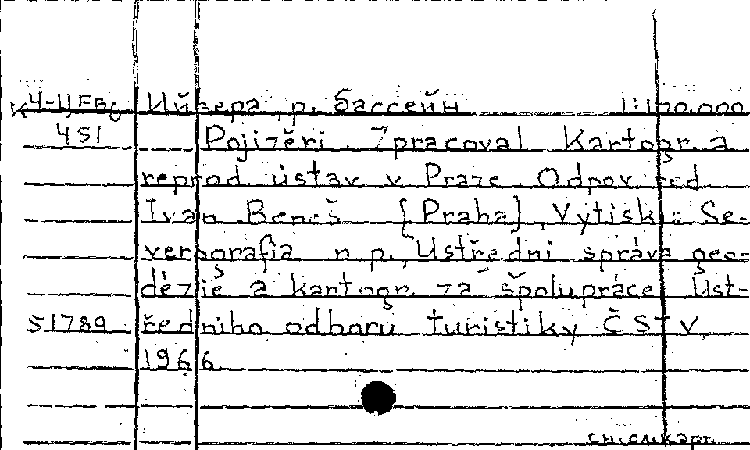 К4-II,Гвд Ийзера, р. бассейн 1:100.000
451 Pojizěri Zpracoval Kartogr. a
reprod ústav v Praze Odpov red
Ivan Beneš [Praha], Vytiskla Se-
verografia n.p., Ústřední správa geo-
dézie a kartogr. za spolupráce Úst-
51789 ředniho odboru turistiky ČSTV,
1966